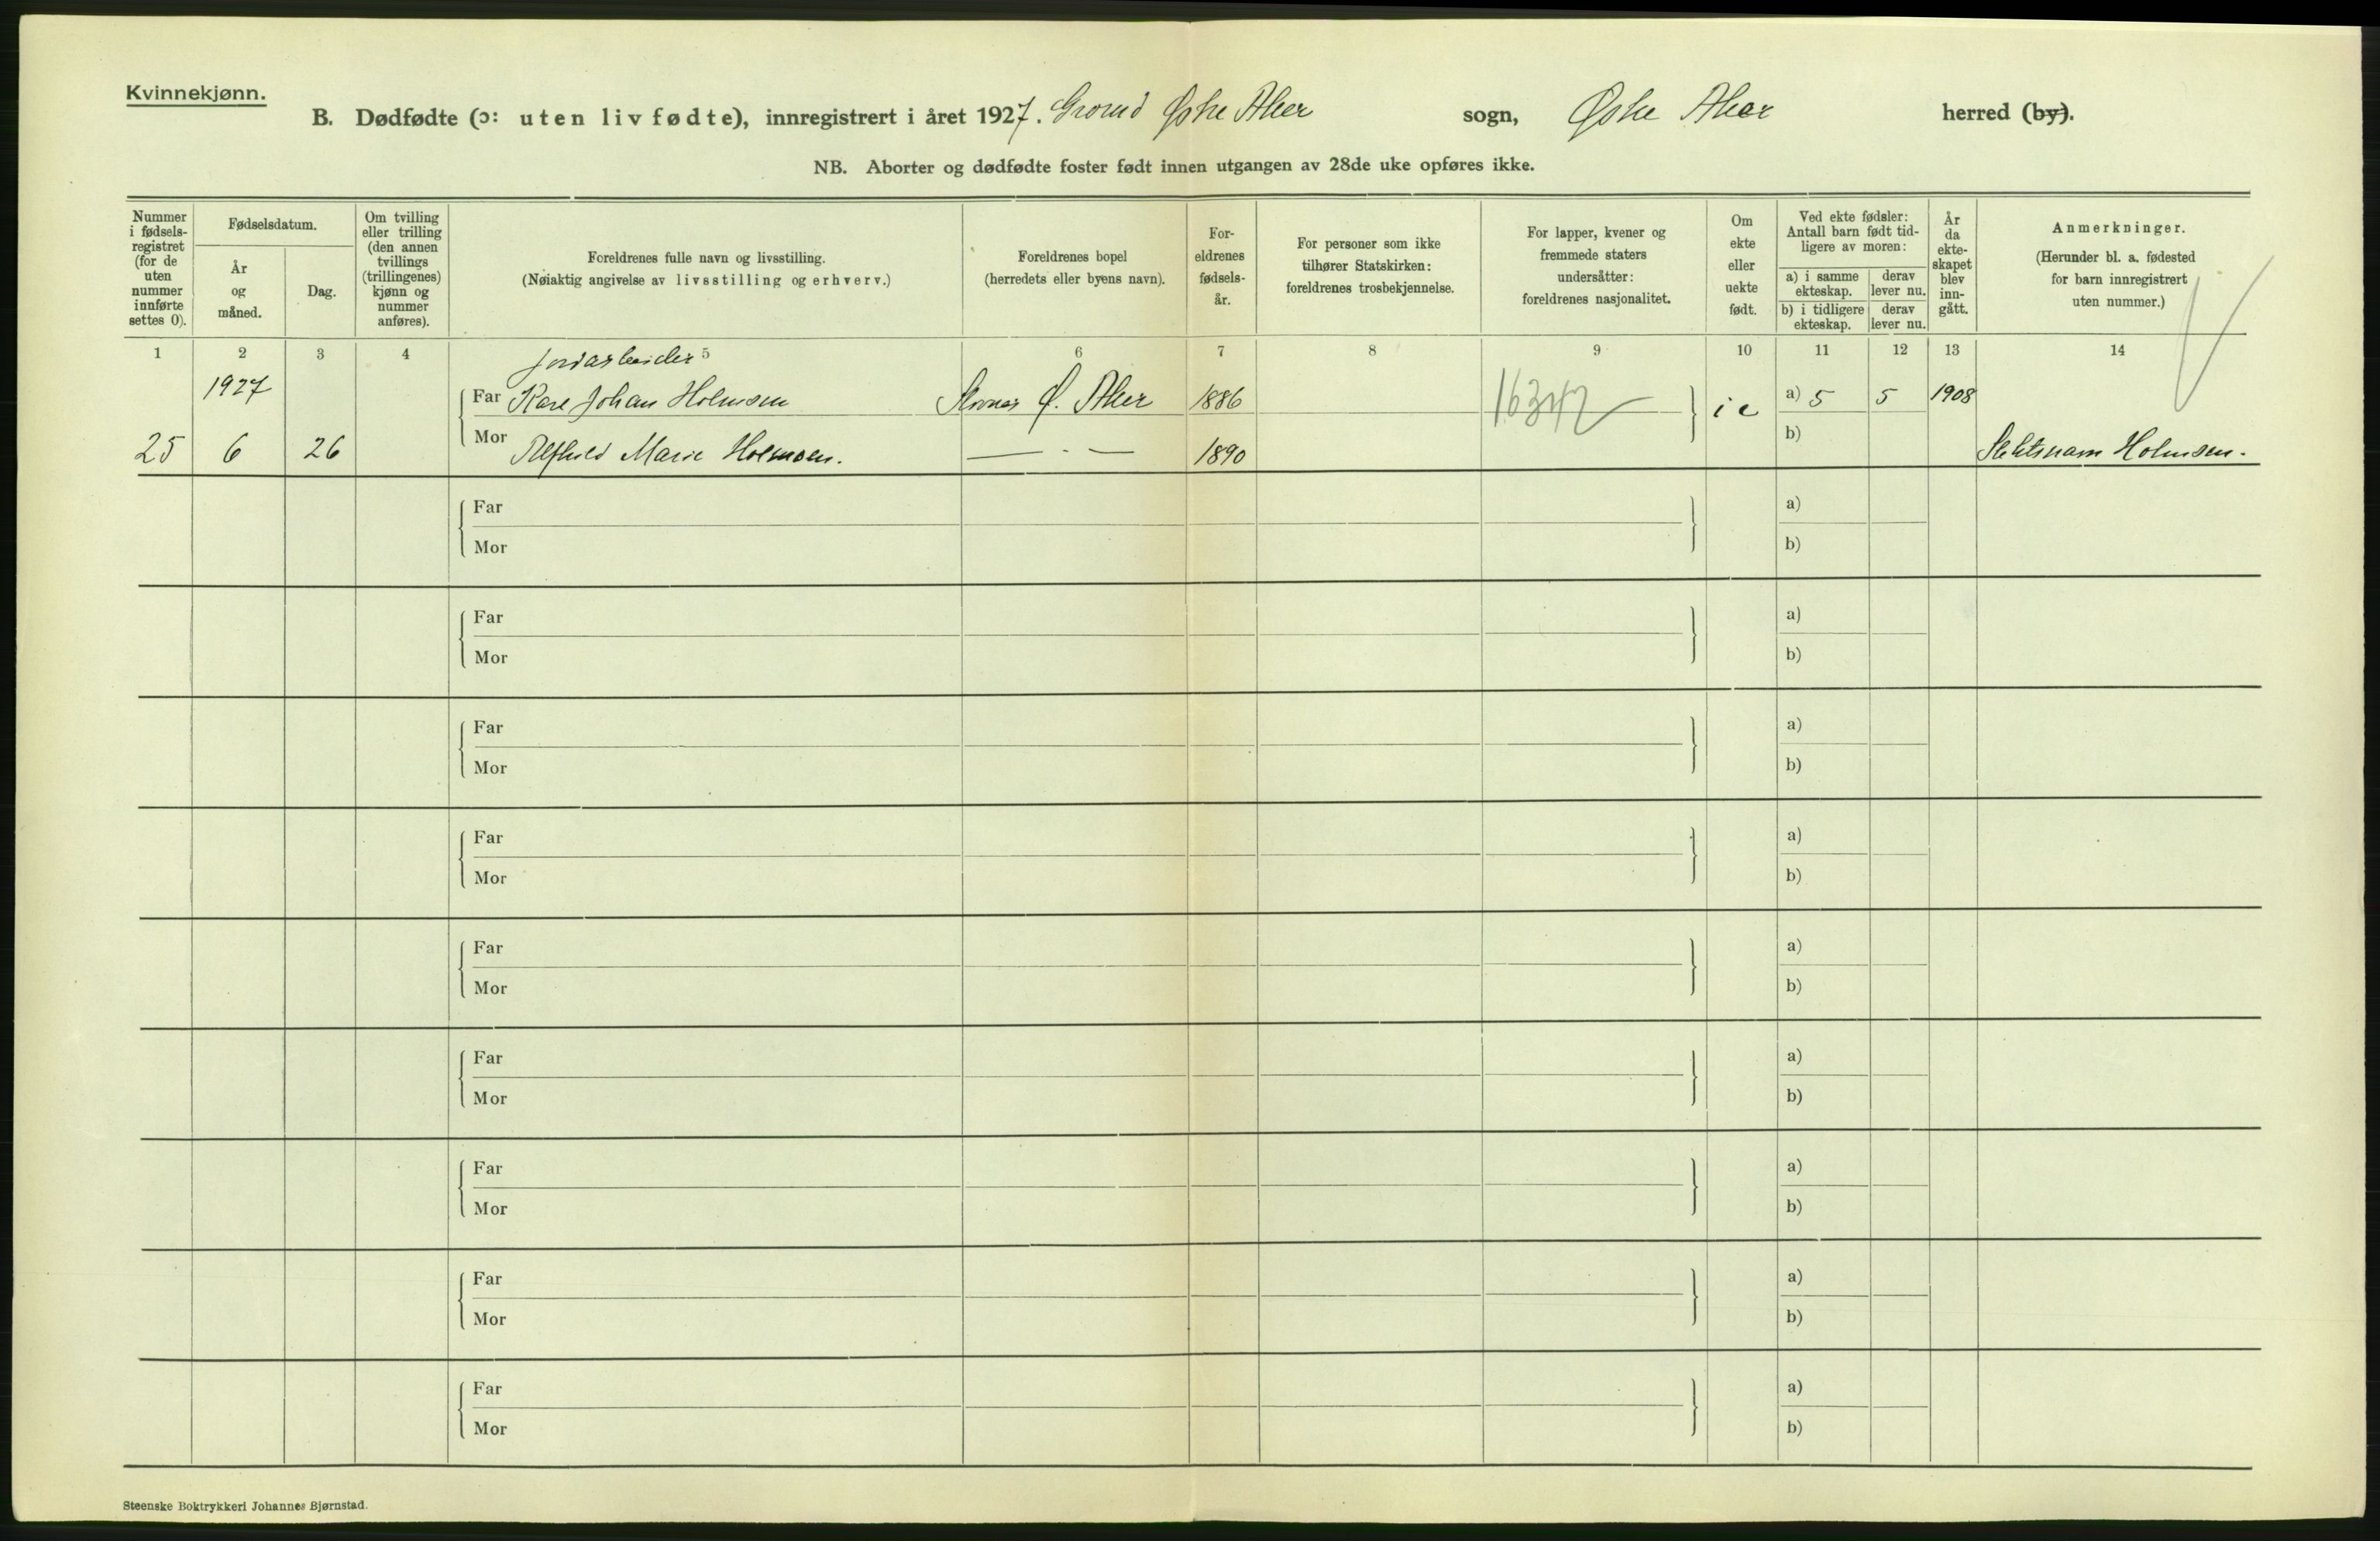 Kvinnekjønn.
B. Dødfødte (ɔ: uten liv fødte), innregistrert i året 1927. Grorud Østre Aker sogn, Østre Aker herred (by).
NB. Aborter og dødfødte foster født innen utgangen av 28de uke opføres ikke.
Nummer i fødsels-registret (for de uten nummer innførte settes 0).
Fødselsdatum.
År og måned.
Dag.
Om tvilling eller trilling (den annen tvillings (trillingenes) kjønn og nummer anføres).
Foreldrenes fulle navn og livsstilling.
(Nøiaktig angivelse av livsstilling og erhverv.)
Foreldrenes bopel
(herredets eller byens navn).
For-eldrenes fødsels-år.
For personer som ikke tilhører Statskirken: foreldrenes trosbekjennelse.
For lapper, kvener og fremmede staters undersåtter: foreldrenes nasjonalitet.
Om ekte eller uekte født.
Ved ekte fødsler: Antall barn født tid-ligere av moren:
a) i samme ekteskap. derav lever nu.
b) i tidligere ekteskap. derav lever nu.
År da ekte-skapet blev inn-gått.
Anmerkninger.
(Herunder bl. a. fødested for barn innregistrert uten nummer.)
1 2 3 4 5 6 7 8 9 10 11 12 13 14
Jordarbeider
1927 Far Karl Johan Holmsen Stovner Ø. Aker 1886 16342 i e a) 5 5 1908
25 6 26 Mor Alfhild Marie Holmsen. — · — 1890 b) Slektsnavn Holmsen.
Far a)
Mor b)
Far a)
Mor b)
Far a)
Mor b)
Far a)
Mor b)
Far a)
Mor b)
Far a)
Mor b)
Far a)
Mor b)
Far a)
Mor b)
Far a)
Mor b)
Steenske Boktrykkeri Johannes Bjørnstad.